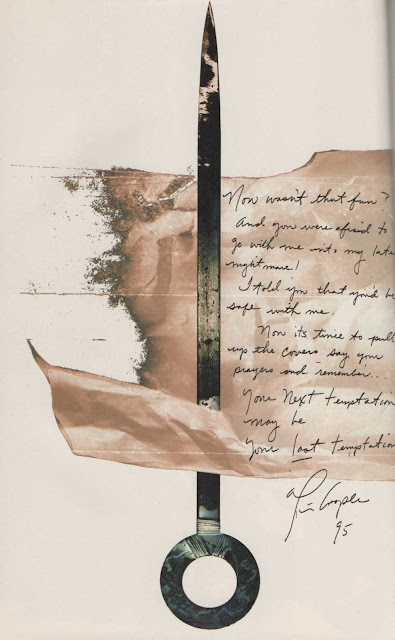 Now wasn't that fun?
And you were afraid to
go with me into my late
nightmare!
I told you that you'd be
safe with me.
Now its time to pull
up the covers say your
prayers and remember...
Your Next temptation
may be
Your last temptation
Cooper
95